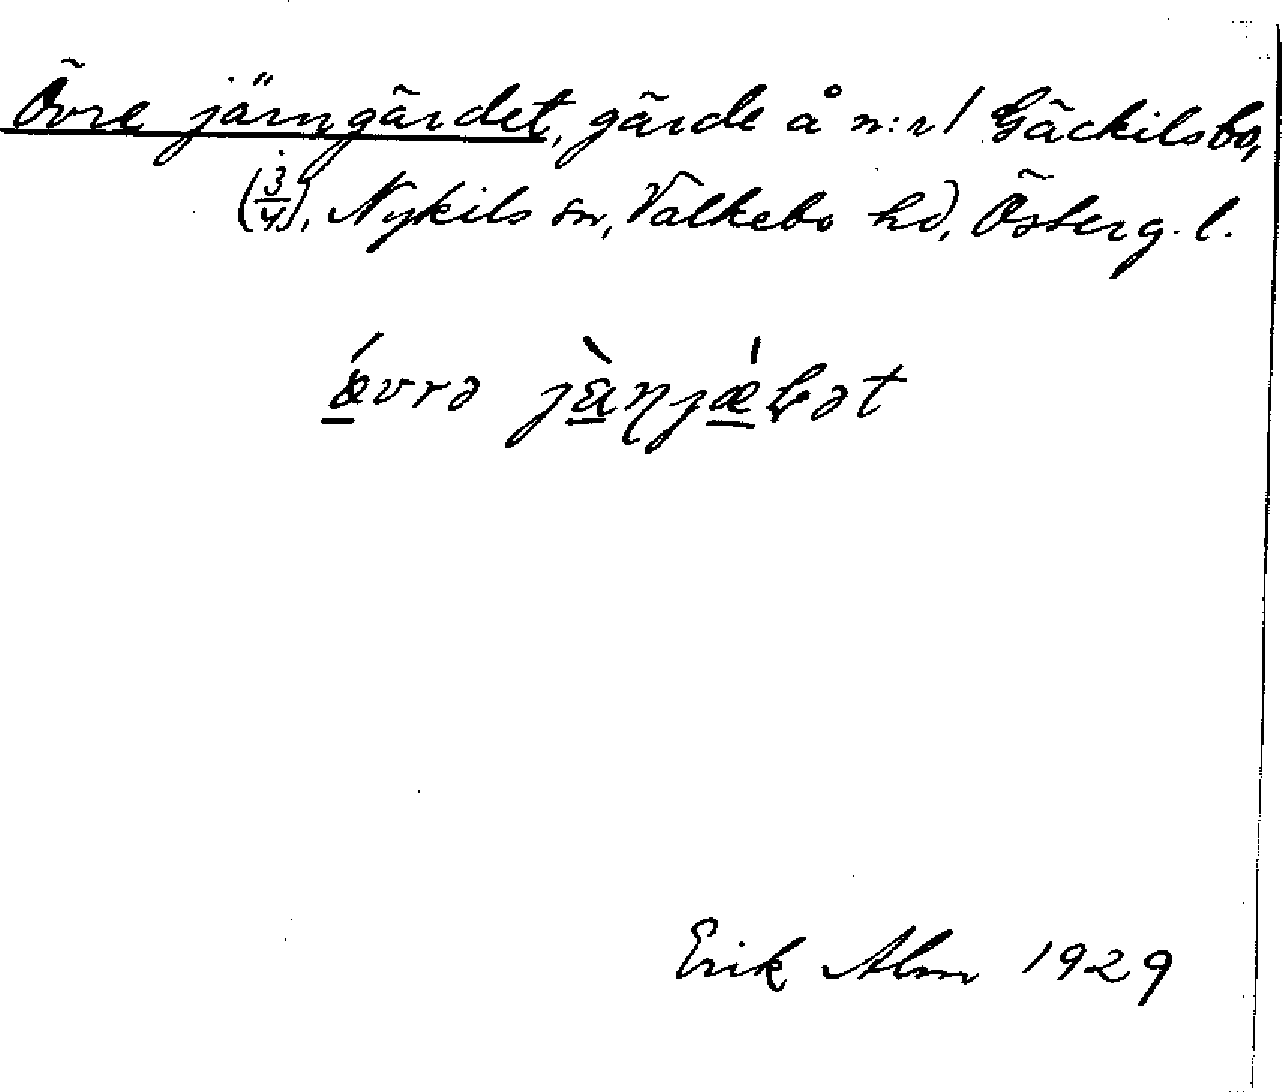 Övre järngärdet, gärde å n:r 1 Gäckilsbo,
(3/4), Nykils sn, Valkebo hd, Österg. l.
ǽvrə jæ̀ŋjǽɽət
Erik Alm 1929